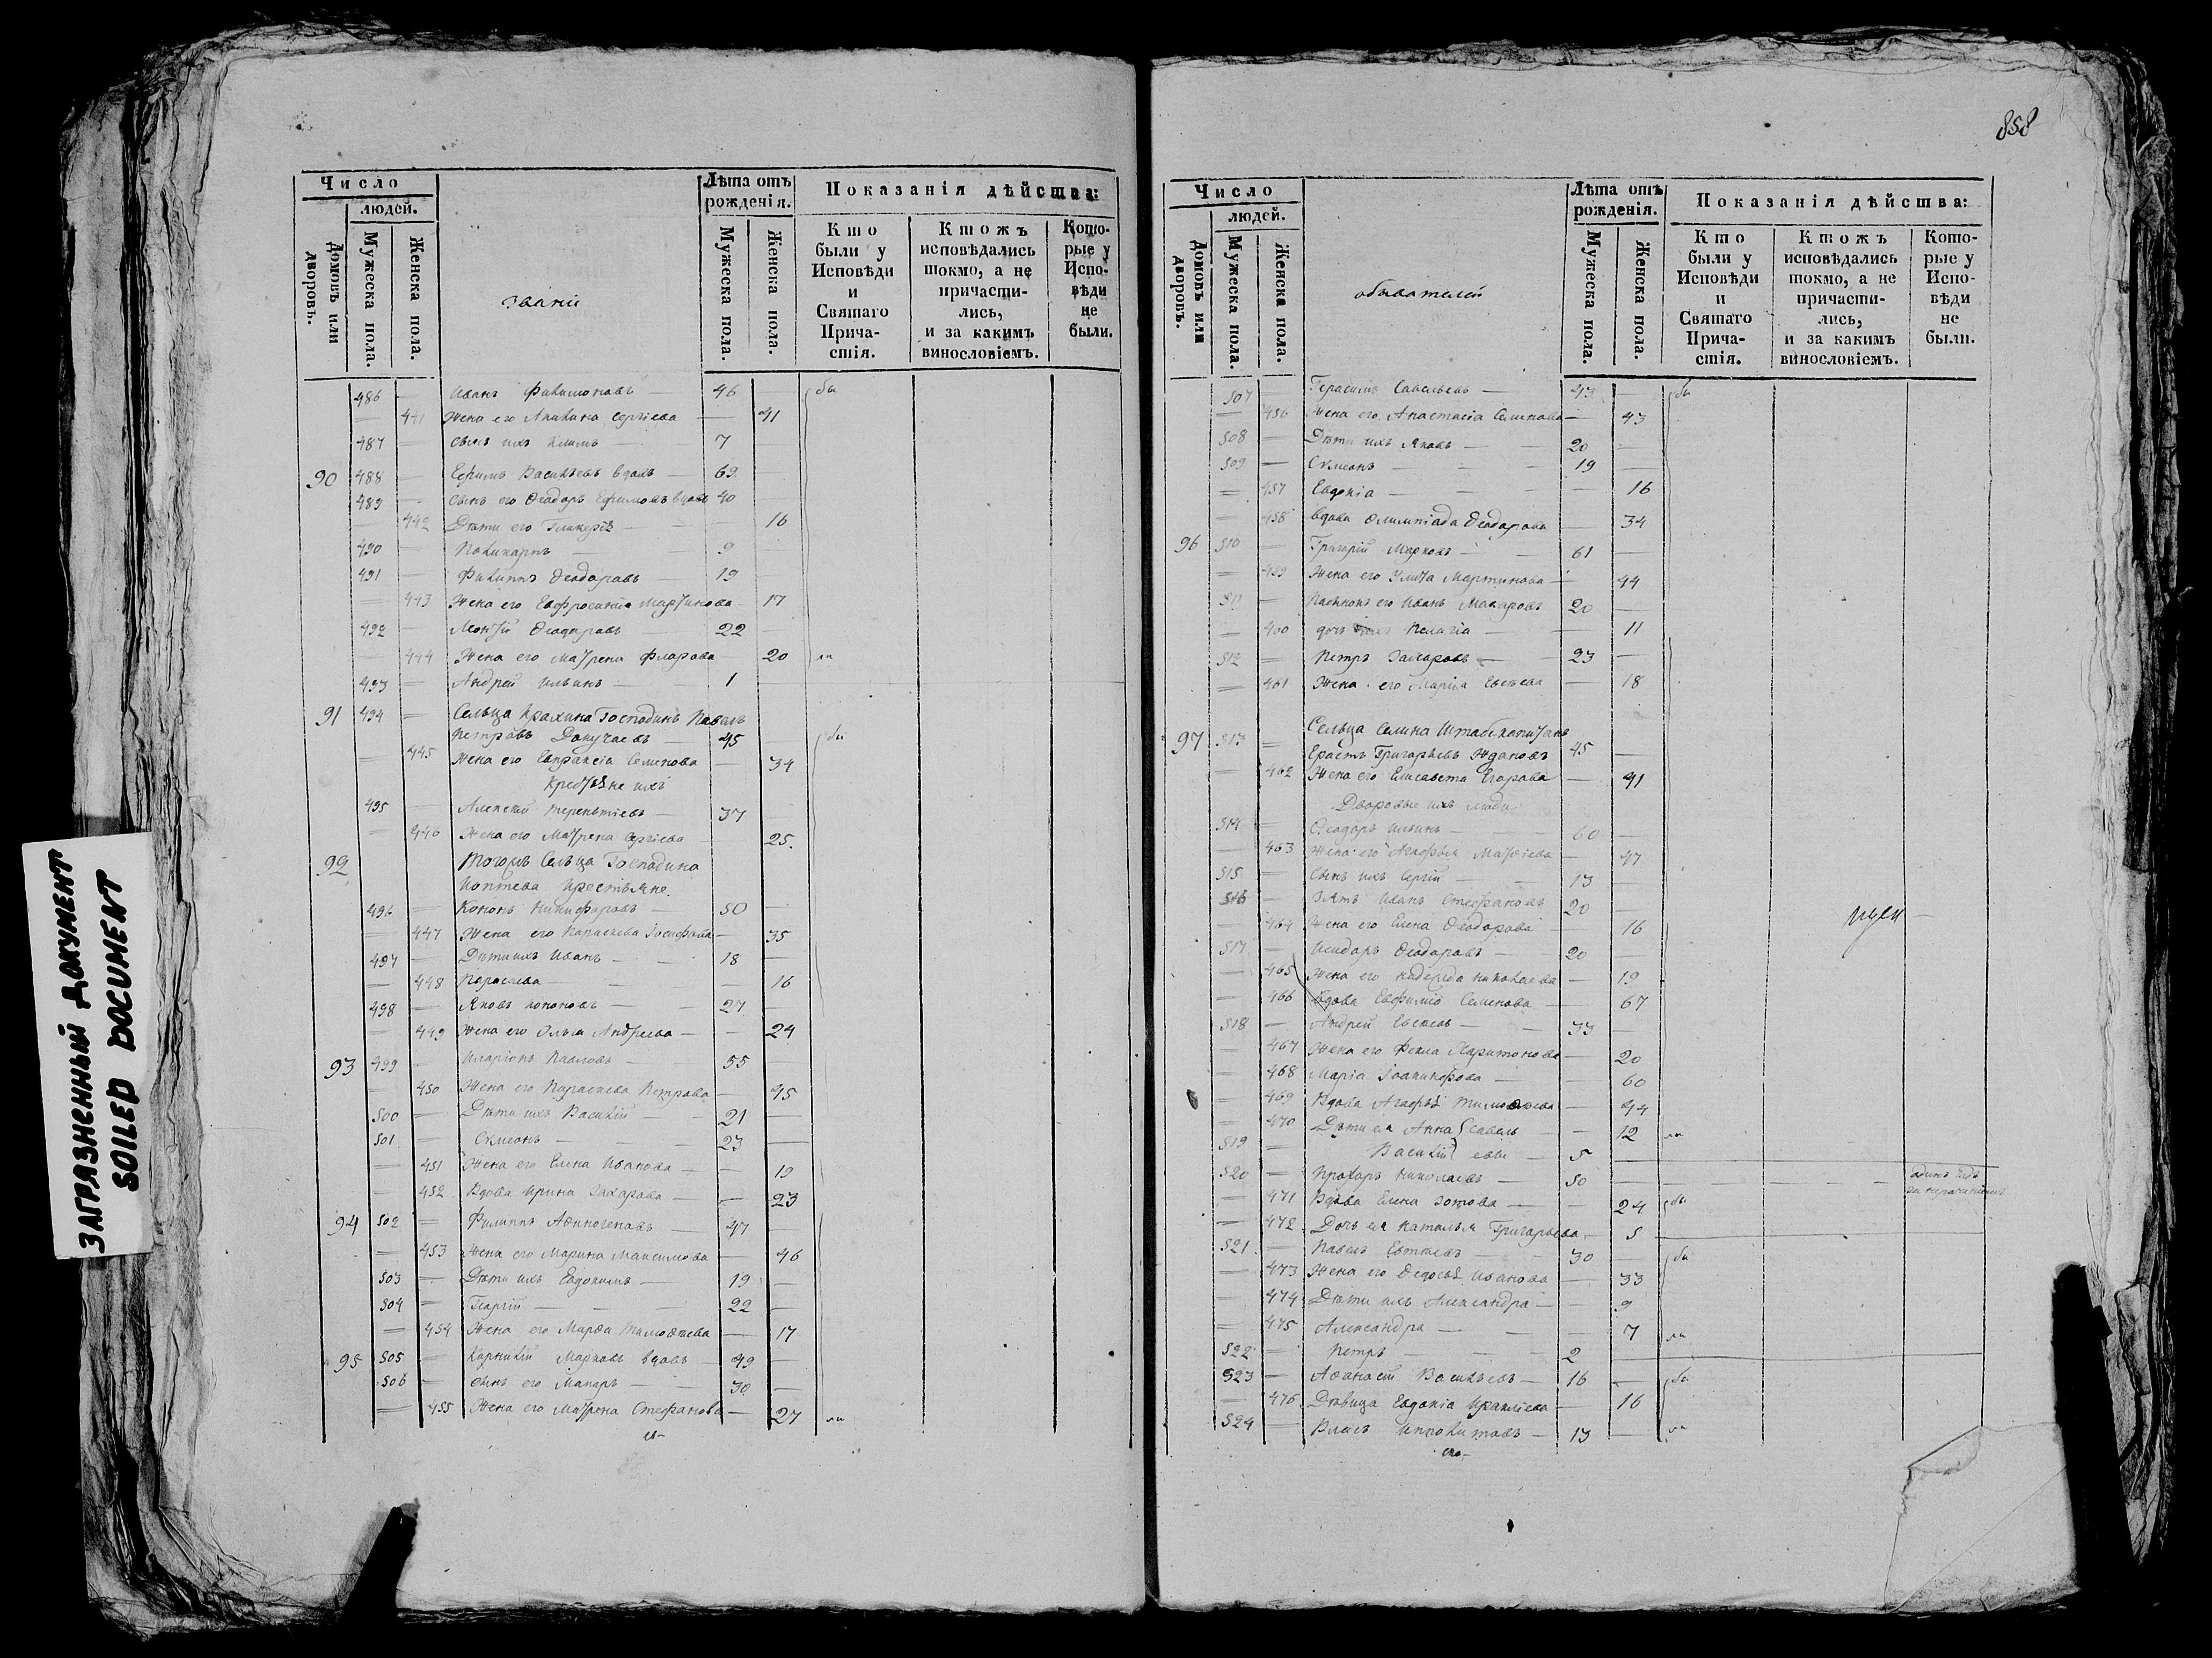 858
Число
людей.
Домовъ или дворовъ.
Мужеска пола.
Женска пола.
званіи
Лѣта отъ рожденія.
Мужеска пола.
Женска пола.
Показанія дѣйства:
Кто были у Исповѣди и Святаго Прича-стія.
Ктожъ исповѣдались токмо, а не причасти-лись, и за какимъ винословіемъ.
Кото-рые у Испо-вѣди не были.
486 — Иванъ Филимоновъ — 46 — бы
— 441 Жена его Акилина Сергіева — 41
487 — сынъ ихъ Климъ — 7
90 488 — Ефимъ Васильевъ вдовъ — 69
489 — сынъ его Ѳеодоръ Ефимовъ вдовъ 40
— 442 Дѣти его Гликерія — 16
490 — Поликарпъ — 9
491 — Филиппъ Ѳеодоровъ — 19
— 443 Жена его Евфросинія Мартинова — 17
492 — Леонтій Ѳеодоровъ — 22
— 444 Жена его Матрена Фларова — 20 ли
493 — Андрей Ильинъ — 1
91 494 — Сельца Господинъ Павелъ
Петровъ Докучаевъ — 45 — бы
— 445 Жена его Евпраксіа Семенова — 34
Крестьяне ихъ
495 — Алексій Терентіевъ — 37
— 446 Жена его Матрена Сергіева — 25.
92 Тогожъ Сельца Господина
Коптева Крестьяне.
496 — Кононъ Никифоровъ — 50 —
— 447 Жена его Параскева Іосифова — 35
497 — Дѣти ихъ Иванъ — 18 —
— 448 Параскева — 16
498 — Яковъ Кононовъ — 27
— 449 Жена его Ольга Андреева — 24
93 499 — Иларіонъ Павловъ — 55
— 450 Жена его Параскева Петрова — 45
500 — Дѣти ихъ Василій — 21 —
501 — Симеонъ — 23 —
— 451 Жена его Елена Иванова — 19
— 452 Вдова Ирина Захарова — 23
94 502 — Филиппъ Аѳиногеновъ — 47
— 453 Жена его Марина Максимова — 46
503 — Дѣти ихъ Евдокимъ — 19 —
504 — Георгій — 22 —
— 454 Жена его Марѳа Тимоѳеева — 17
95 505 — Корнилій Марковъ вдовъ — 49 —
506 — сынъ его Макаръ — 30 —
— 455 Жена его Матрона Стефанова — 27 ли
Число
людей.
Домовъ или дворовъ.
Мужеска пола.
Женска пола.
обывателей
Лѣта отъ рожденія.
Мужеска пола.
Женска пола.
Показанія дѣйства:
Кто были у Исповѣди и Святаго Прича-стія.
Ктожъ исповѣдались токмо, а не причасти-лись, и за какимъ винословіемъ.
Кото-рые у Испо-вѣди не были.
507 Герасимъ Савельевъ — 43 — бы
— 456 Жена его Анастасіа Семенова — 43
508 — Дѣти ихъ Яковъ — 20
509 — Симеонъ — 19 —
— 457 Евдокіа — 16
— 458 вдова Олимпіада Ѳеодорова — 34
96 510 — Григорій Марковъ — 61 —
— 459 Жена его Улита Мартинова — 44
511 — Пасынокъ его Иванъ Макаровъ 20 —
— 460 дочь Пелагіа — 11
512 — Петръ Захаровъ — 23 —
— 461 Жена его Маріа Евсеева — 18
97 513 — Сельца Селина Штабскапитанъ
Ерастъ Григорьевъ Ждановъ 45 —
— 462 Жена его Елисавета Егорова — 41
Дворовые ихъ люди
514 — Ѳеодоръ Ильинъ — 60 —
— 463 Жена его Агафья Матвіева — 47
515 — Сынъ ихъ Сергій — 13
516 — Зять Иванъ Стефановъ 20 —
— 464 Жена его Елена Ѳеодорова — 16
517 — Исидоръ Ѳеодоровъ — 20 —
— 465 Жена его Надежда Николаева — 19
— 466 Вдова Евфиміа Семенова — 67
518 — Андрей Евсеевъ — 33 —
— 467 Жена его Фекла Харитонова — 20
— 468 Маріа — 60
— 469 Вдова Агафья Тимоѳеева — 44
— 470 Дѣти ея Анна Савель 12 ли
519 Василій евы — 5
520 — Прохоръ Николаевъ — 50 —
— 471 Вдова Елена Зотова — 24 бы
— 472 Дочь ея Наталья Григорьева — 5
521 — Павелъ Евтеевъ 30 — бы
— 473 Жена его Ѳедосья Иванова — 33
— 474 Дѣти ихъ Александра — 9
— 475 Александра — 7 ли
522 — Петръ — 2
523 — Аѳанасій Васильевъ — 16 — бы
— 476 Дѣвица Евдокіа Ираклиева — 16
524 — Власъ Ипполитовъ — 13 — ли
ЗАГРЯЗНЕННЫЙ ДОКУМЕНТ
SOILED DOCUMENT